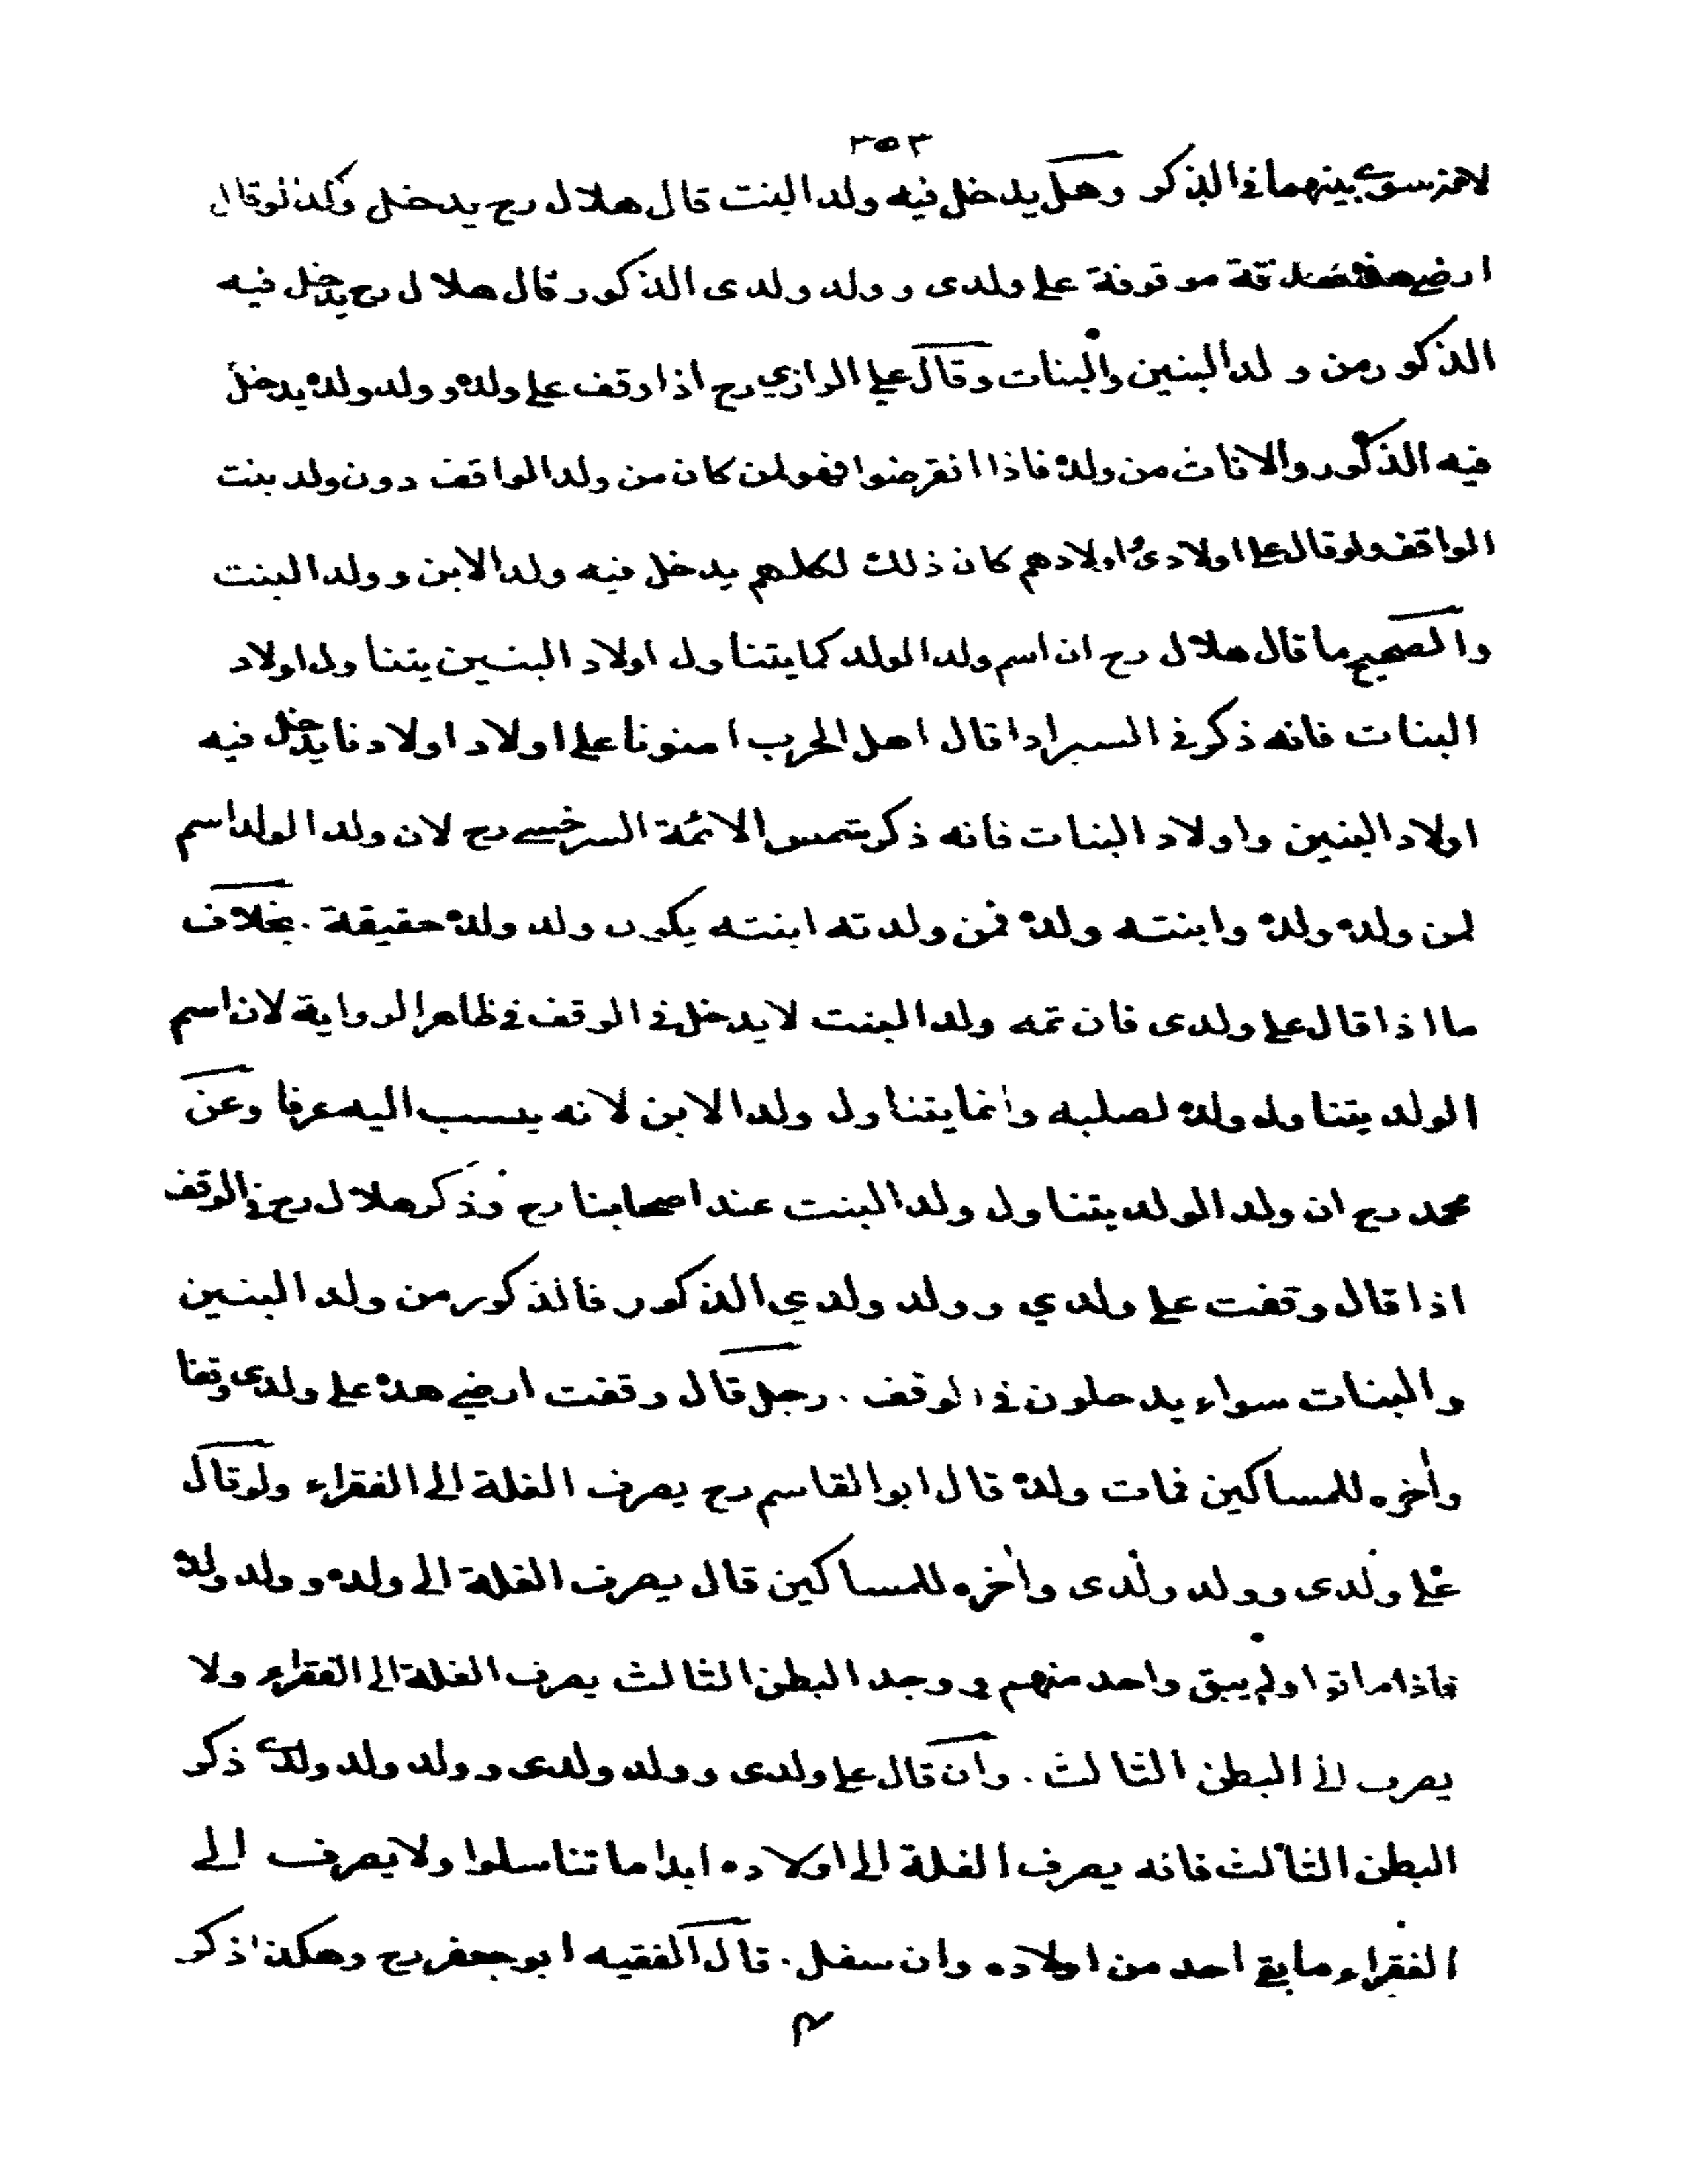 ٣٥٣
لانه سوى بينهما في الذكر وهل يدخل فيه ولد البنت قال هلال رح يدخل وكذا لو قال
ارضي هذه صدقة موقوفة على ولدى وولد ولدى الذكور قال هلال رح يدخل فيه
الذكور من ولد البنين والبنات وقال علي الرازي رح اذا وقف على ولده وولد ولده يدخل
فيه الذكور والاناث من ولده فاذا انقرضوا فهو لمن كان من ولد الواقف دون ولد بنت
الواقف ولو قال على اولادى واولادهم كان ذلك لكلهم يدخل فيه ولد الابن وولد البنت
والصحيح ما قال هلال رح ان اسم ولد الولد كما يتناول اولاد البنين يتناول اولاد
البنات فانه ذكر في السير اذا قال اهل الحرب امنونا على اولاد اولادنا يدخل فيه
اولاد البنين واولاد البنات فانه ذكر شمس الائمة السرخسي رح لان ولد الولد اسم
لمن ولده ولده وابنته ولده فمن ولدته ابنته يكون ولد ولده حقيقة . بخلاف
ما اذا قال على ولدى فان ثمه ولد البنت لا يدخل في الوقف في ظاهر الرواية لان اسم
الولد يتناول ولده لصلبه وانما يتناول ولد الابن لانه ينسب اليه عرفا وعن
محمد رح ان ولد الولد يتناول ولد البنت عند اصحابنا رح وذكر هلال رح في الوقف
اذا قال وقفت على ولدي وولد ولدي الذكور فالذكور من ولد البنين
والبنات سواء يدخلون في الوقف . رجل قال وقفت ارضي هذه على ولدى وقفا
واخره للمساكين فمات ولده قال ابو القاسم رح يصرف الغلة الى الفقراء ولو قال
على ولدى وولد ولدى واخره للمساكين قال يصرف الغلة الى ولده وولد ولده
فاذا ماتوا ولم يبق واحد منهم ووجد البطن الثالث يصرف الغلة الى الفقراء ولا
يصرف الى البطن الثالث . وان قال على ولدى وولد ولدى وولد ولد ولدى ذكر
البطن الثالث فانه يصرف الغلة الى اولاده ابدا ما تناسلوا ولا يصرف الى
الفقراء ما بقي احد من اولاده وان سفل . قال الفقيه ابو جعفر رح وهكذا ذكر